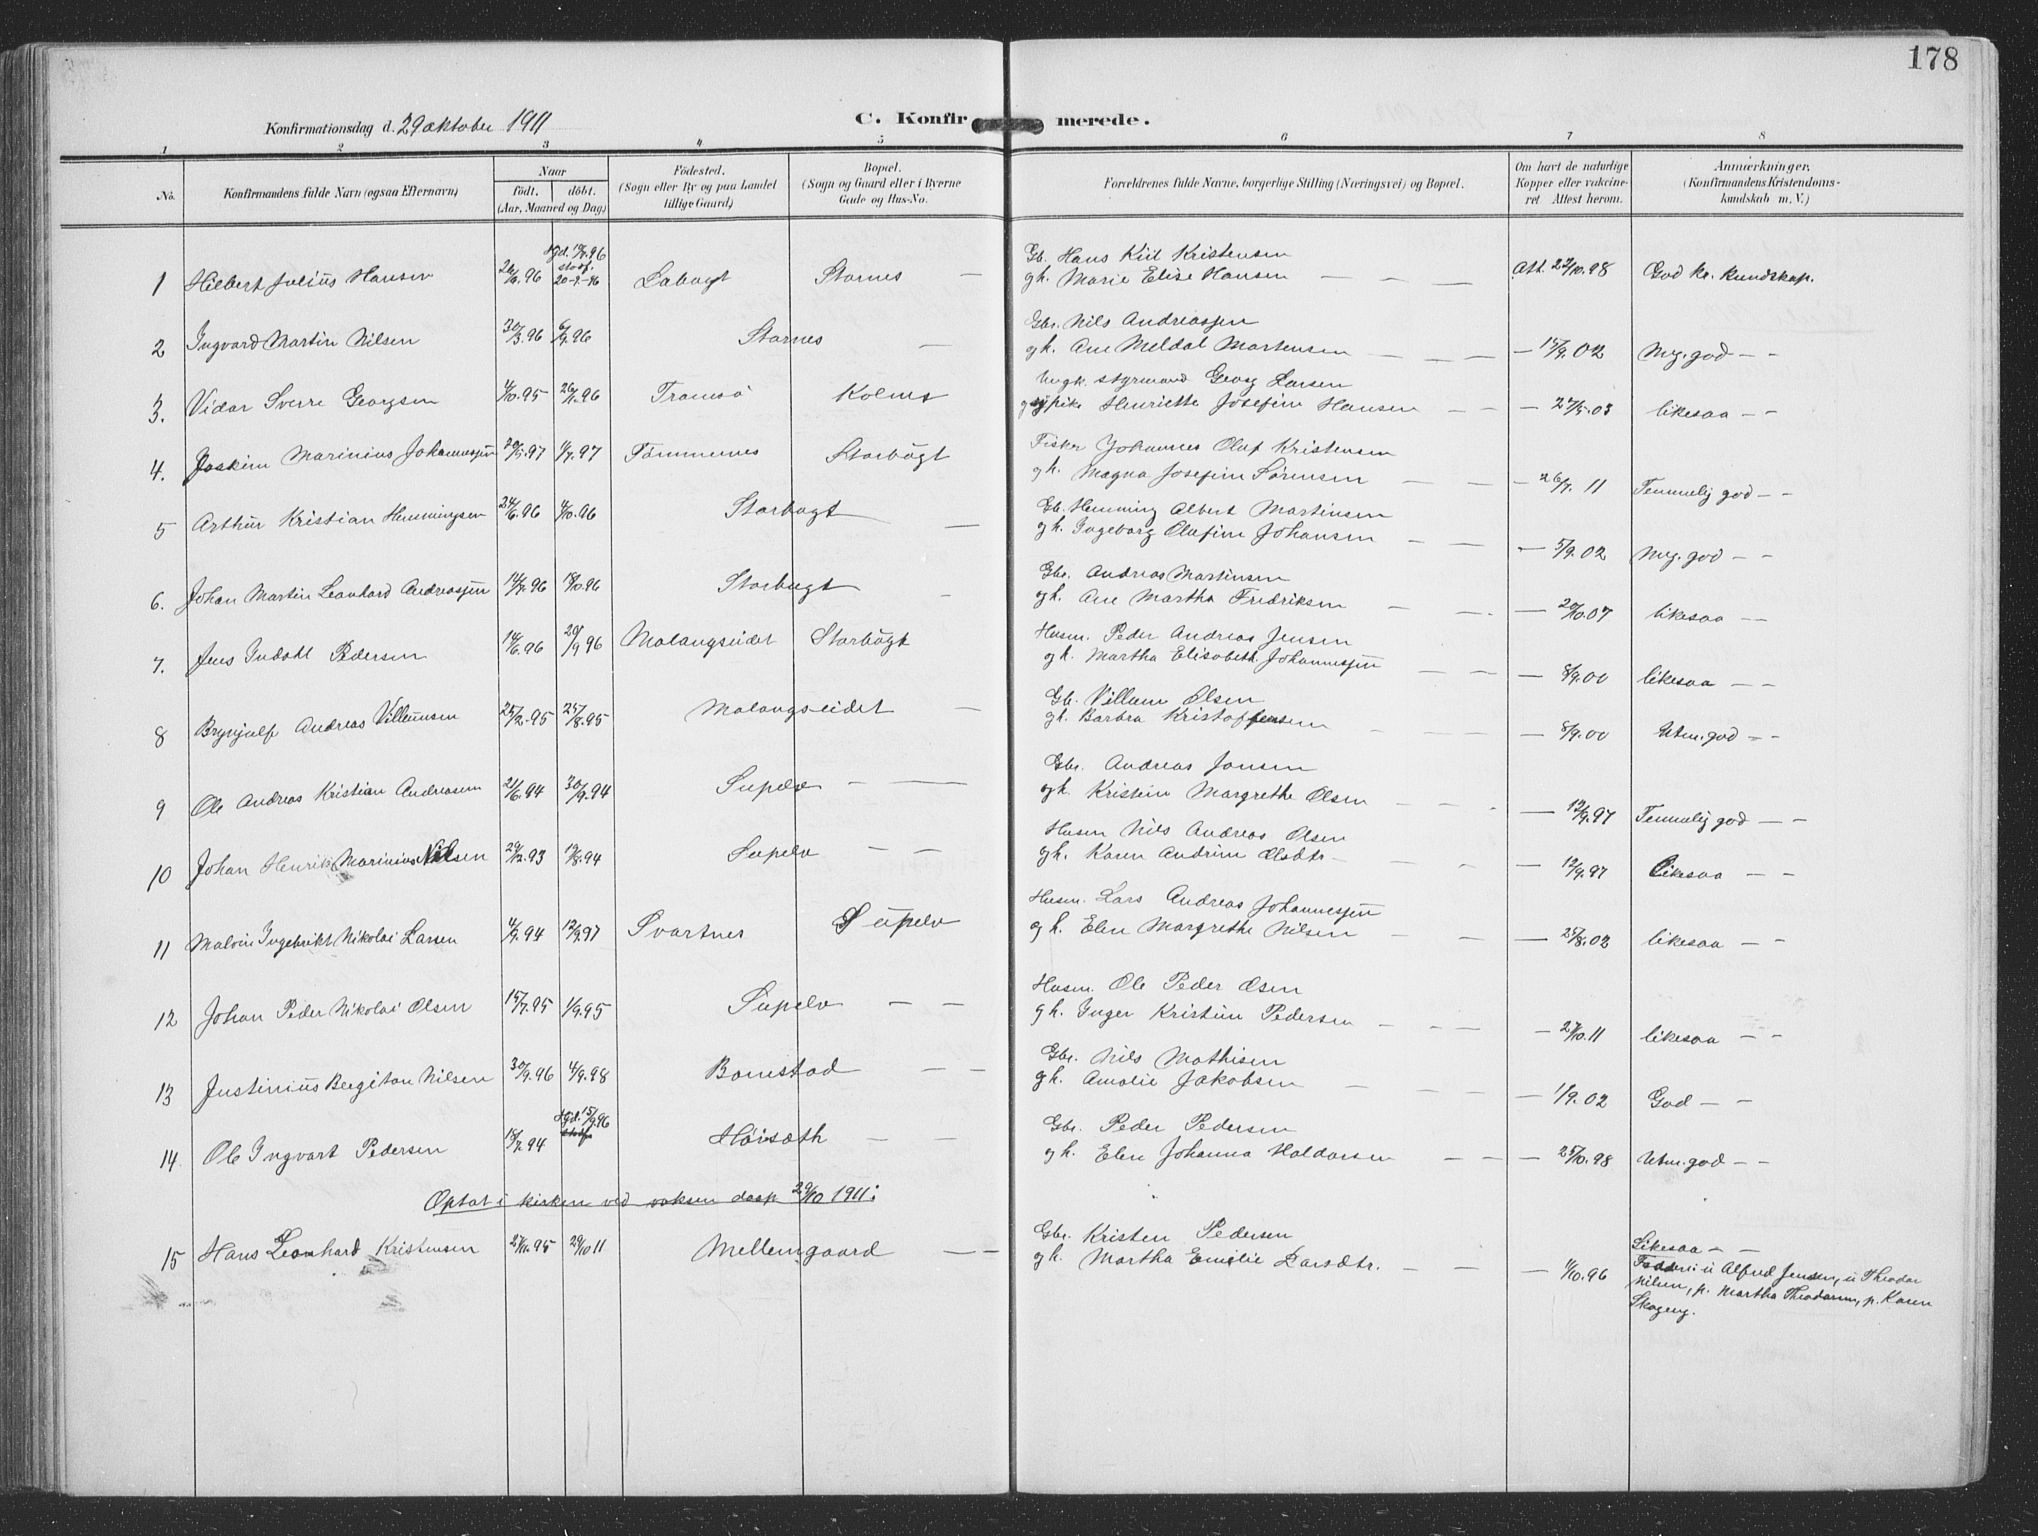 178
Konfirmationsdag d. 29 oktober 1911
C. Konfirmerede.
1 2 3 4 5 6 7 8
No.
Konfirmandens fulde Navn (ogsaa Efternavn)
Naar
født. døbt.
(Aar, Maaned og Dag)
Fødested.
(Sogn eller By og paa Landet
tillige Gaard)
Bopæl.
(Sogn og Gaard eller i Byerne
Gade og Hus-No.
Forældrenes fulde Navne, borgerlige Stilling (Næringsvei) og Bopæl.
Om havt de naturlige
Kopper eller vakcine-
ret Attest herom.
Anmærkninger.
(Konfirmandens Kristendoms-
kundskab m. V.)
1 Hilbert Julius Hansen Stornes — Gb. Hans Kiil Kristensen
gh. Marie Elise Hansen — — — Att. God kr. kundskap.
2 Ingvard Martin Nilsen 30/3.96 6/9.96 Stornes — Gbr. Nils Andreassen
gh. Ane Meldal Martensen — — — 15/9.02 Mg. god — -
3. Vidar Sverre Georgsen 4/10.95 26/1.96 Tromsø Ungk. styrmand Georg Larsen
og pike Henriette Josefine Hansen — — — 27/5.03 likesaa — -
4. Joakim Marinius Johannessen Tømmernes Storbugt Fisker Johannes Olaf Kristensen
gh. Magna Josefine Sørensen — — — 26/7.11 Temmelig god — -
5 Arthur Kristian Henningsen 24/6.96 4/10.96 Storbugt — Gb. Henning Albert Martinsen
gh. Ingeborg Olufine Johansen — — — 5/9.02 Mg. god — -
6. Johan Martin Leonhard Andreassen 14/7.96 18/10.96 Storbugt - Gbr. Andreas Martinsen
gh. Ane Martha Fredriksen — — — 20/10.07 likesaa — -
7. Jens Indahl Pedersen 14/6.96 20/9 96 Malangseidet Storbugt Husm. Peder Andreas Jensen
gh. Martha Elisabeth Johannessen — — — 8/9.00 likesaa — -
8 Brynjulf Andreas Villumsen 25/2.95 25/8.95 Malangseidet — Gb. Villum Olsen
gh. Barbra Kristoffersen — — — 8/9.00 Utm. god — -
9 Ole Andreas Kristian Andreasen 21/6.94 30/9.94 Supelv — — Gbr. Andreas Jonsen
gh. Kristine Margrethe Olsen — — — 12/9.97 Temmelig god — -
10 Johan Henrik Marinius Nilsen 29/12.93 19/8.94 Supelv — — Husm Nils Andreas Olsen
gh. Karen Andrine Olsdtr — — — 12/9.97 Likesaa — -
11 Malvin Ingebrikt Nikolai Larsen 4/9.94 12/9.97 Svartnes Supelv Husm. Lars Andreas Johannessen
gh. Elen Margrethe Nilsen — — — 25/8.02 likesaa — -
12 Johan Peder Nikolai Olsen 15/7.95 1/9.95 Supelv — — Husm. Ole Peder Olsen
gh. Inger Kristine Pedersen — — — 27/10.11 likesaa — -
13 Justinius Bergiton Nilsen 30/9.96 4/9.98 Bomstad — — Gbr. Nils Mathisen
gh. Amalie Jakobsen — — — 1/9.02 God — -
14. Ole Ingvart Pedersen 15/7.94 Høisæth — — Gbr. Peder Pedersen
gh. Elen Johanna Haldorsen — — — 25/10.98 Utm. god — -
Optat i kirken ved voksen daap 29/10 1911:
15 Hans Leonhard Kristensen 29/10 11 Mellemgaard — — Gbr. Kristen Pedersen
gh. Martha Emelie Larsdtr. — — — 11/10.96 Likesaa — -
Faddere: u Alfred Jensen, u Theodor
Nilsen, p. Martha Theodorsen, p. Karen
Skogeng.